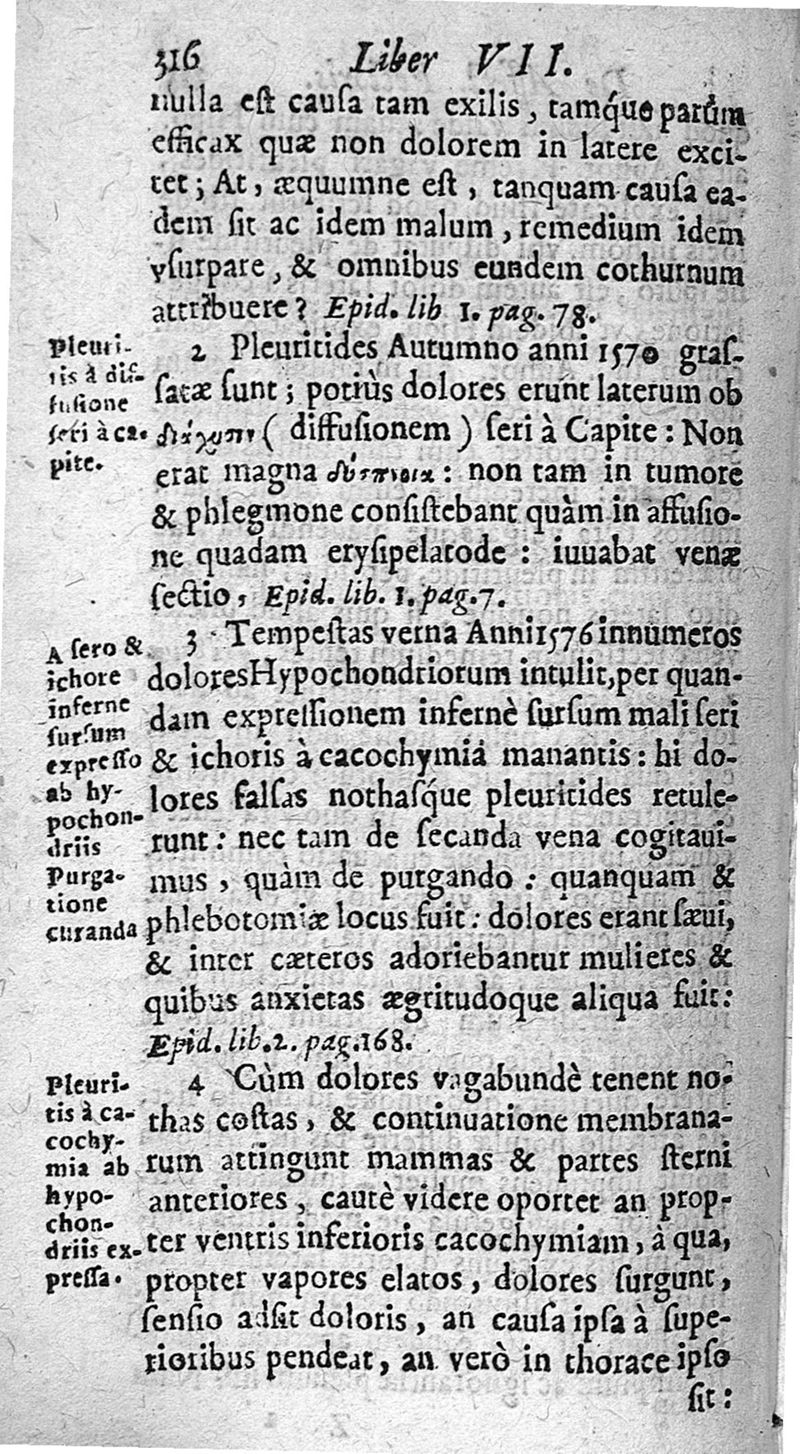 316 Liber VII.
nulla eſt cauſa tam exilis, tamq́ue parùm
efficax quæ non dolorem in latere exci-
tet; At, æquumne eſt, tanquam cauſa ea-
dem ſit ac idem malum, remedium idem
vſurpare, & omnibus eundem cothurnum
attribuere? Epid. lib 1. pag. 78.
Pleuri-
tis à dif-
fuſione
ſeri à ca-
pite.
2 Pleuritides Autumno anni 1570 graſ-
ſatæ ſunt; potiùs dolores erunt laterum ob
διάχυσιν ( diffuſionem ) ſeri à Capite: Non
erat magna δύσπνοια: non tam in tumore
& phlegmone conſiſtebant quàm in affuſio-
ne quadam eryſipelatode: iuuabat venæ
ſectio, Epid. lib. 1. pag. 7.
A ſero &
ichore
inferne
ſurſum
expreſſo
ab hy-
pochon-
driis
Purga-
tione
curanda
3 Tempeſtas verna Anni 1576 innumeros
dolores Hypochondriorum intulit, per quan-
dam expreſſionem infernè ſurſum mali ſeri
& ichoris à cacochymiâ manantis: hi do-
lores falſas nothaſq́ue pleuritides retule-
runt: nec tam de ſecanda vena cogitaui-
mus, quàm de purgando: quanquam &
phlebotomiæ locus fuit: dolores erant ſæui,
& inter cæteros adoriebantur mulieres &
quibus anxietas ægritudoque aliqua fuit:
Epid. lib. 2. pag. 168.
Pleuri-
tis à ca-
cochy-
mia ab
hypo-
chon-
driis ex-
preſſa.
4 Cùm dolores vagabundè tenent no-
thas coſtas, & continuatione membrana-
rum attingunt mammas & partes ſterni
anteriores, cautè videre oportet an prop-
ter ventris inferioris cacochymiam, à qua,
propter vapores elatos, dolores ſurgunt,
ſenſio adſit doloris, an cauſa ipſa à ſupe-
rioribus pendeat, an verò in thorace ipſo
ſit: